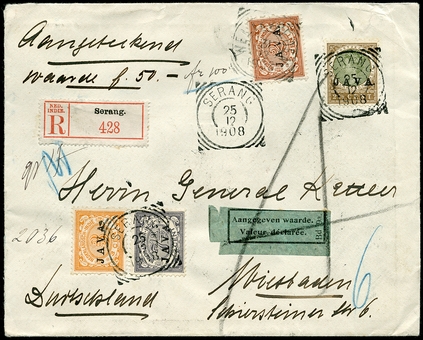 Aangeteekend
waarde f. 50.- fr 100
NED. INDIË.
R
Serang.
428
JAVA
SERANG
25
12
1908
JAVA
25
12
1908
Herrn General Ketteler
2036
JAVA
JAVA
Aangegeven waarde.
Valeur déclarée.
Wiesbaden
6
Deutschland
Schiersteiner Str 6.